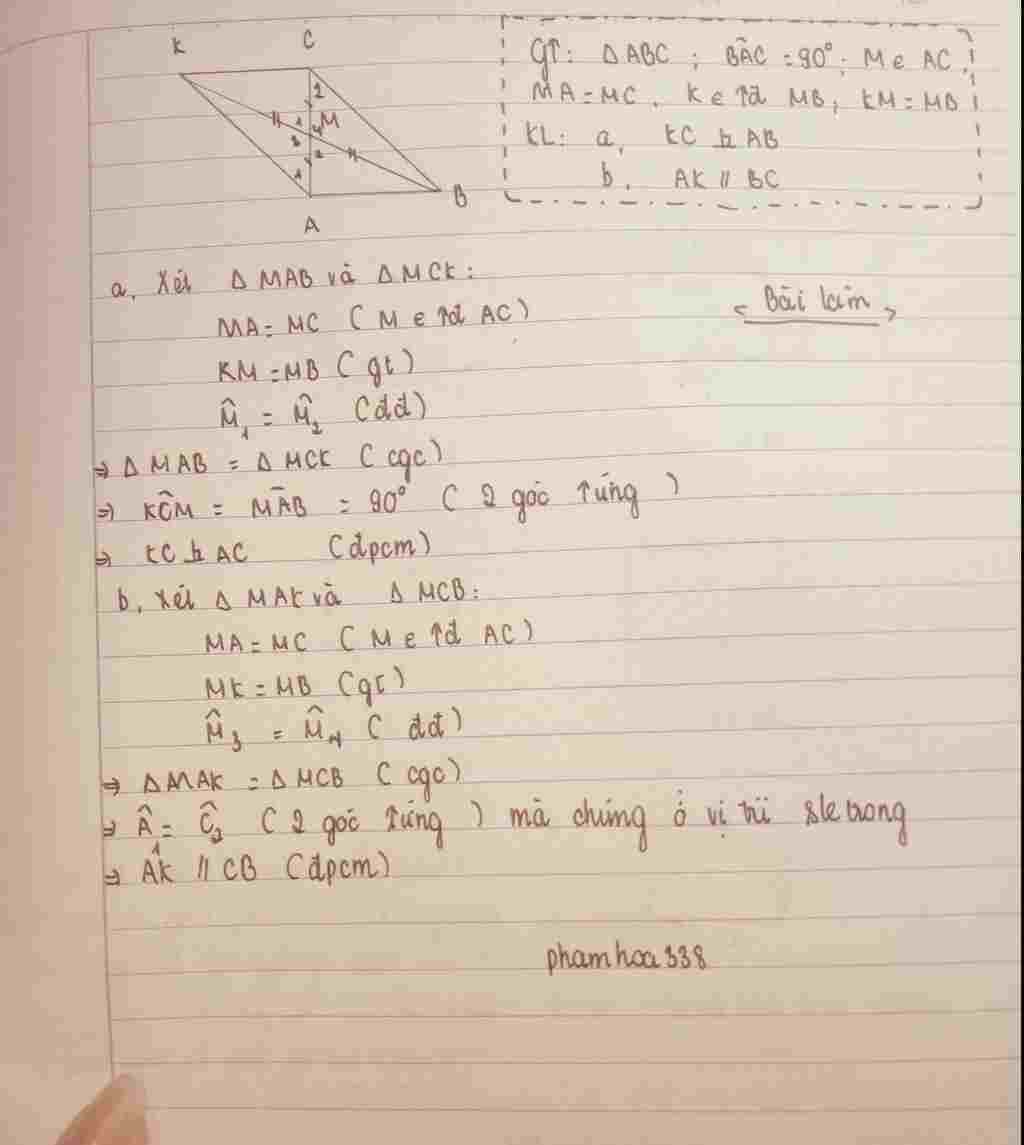 K C
1
1 M
3 4
2
1
B
A
GT: Δ ABC ; BÂC = 90°; M ∈ AC,
MA = MC, K ∈ tđ MB, KM = MB
KL: a, KC ⊥ AB
b, AK // BC
< Bài làm >
a, Xét Δ MAB và Δ MCK:
MA = MC ( M ∈ tđ AC)
KM = MB ( gt)
M̂₁ = M̂₂ (đđ)
⇒ Δ MAB = Δ MCK ( cgc)
⇒ KĈM = MÂB = 90° ( 2 góc tứng )
⇒ KC ⊥ AC (đpcm)
b, Xét Δ MAK và Δ MCB:
MA = MC ( M ∈ tđ AC)
MK = MB (gt)
M̂₃ = M̂₄ ( đđ)
⇒ Δ MAK = Δ MCB ( cgc)
⇒ Â₁ = Ĉ₂ ( 2 góc tứng ) mà chúng ở vị trí sle trong
⇒ AK // CB (đpcm)
phamhoa338